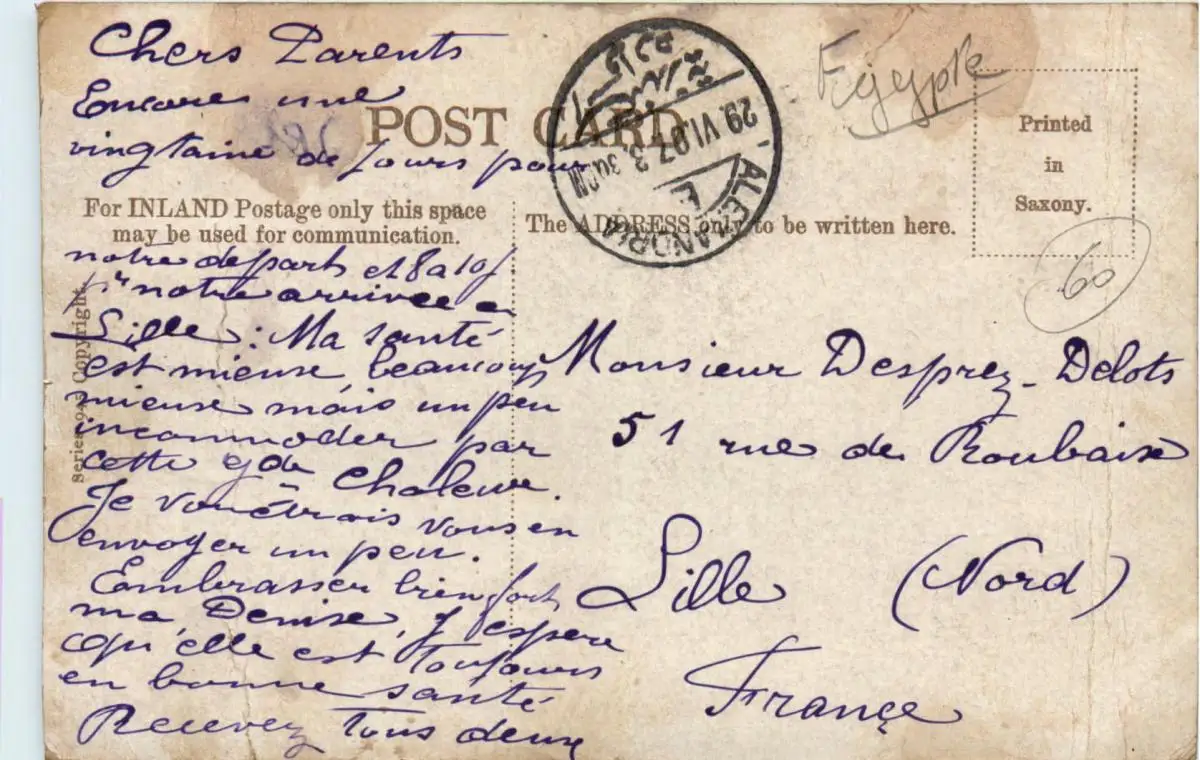 Chers Parents
Encore une
vingtaine de jours pour
POST CARD
For INLAND Postage only this space
may be used for communication.
notre depart et 8 a 10 j
pr notre arrivée a
Lille : Ma santé
est mieuse, beaucoup
mieuse mais un peu
incommoder par
cette gde Chaleur.
Je voudrais vous en
envoyer un peu.
Embrasser bien fort
ma Denise, J'espere
qu'elle est toujours
en bonne santé
Recevez tous deux
Copyright
ALEXANDRIA
29.VI.07 3 30PM
E
Egypte
Printed
in
Saxony.
60
The ADDRESS only to be written here.
Monsieur Desprez-Delots
51 rue de Roubaix
Lille (Nord)
France